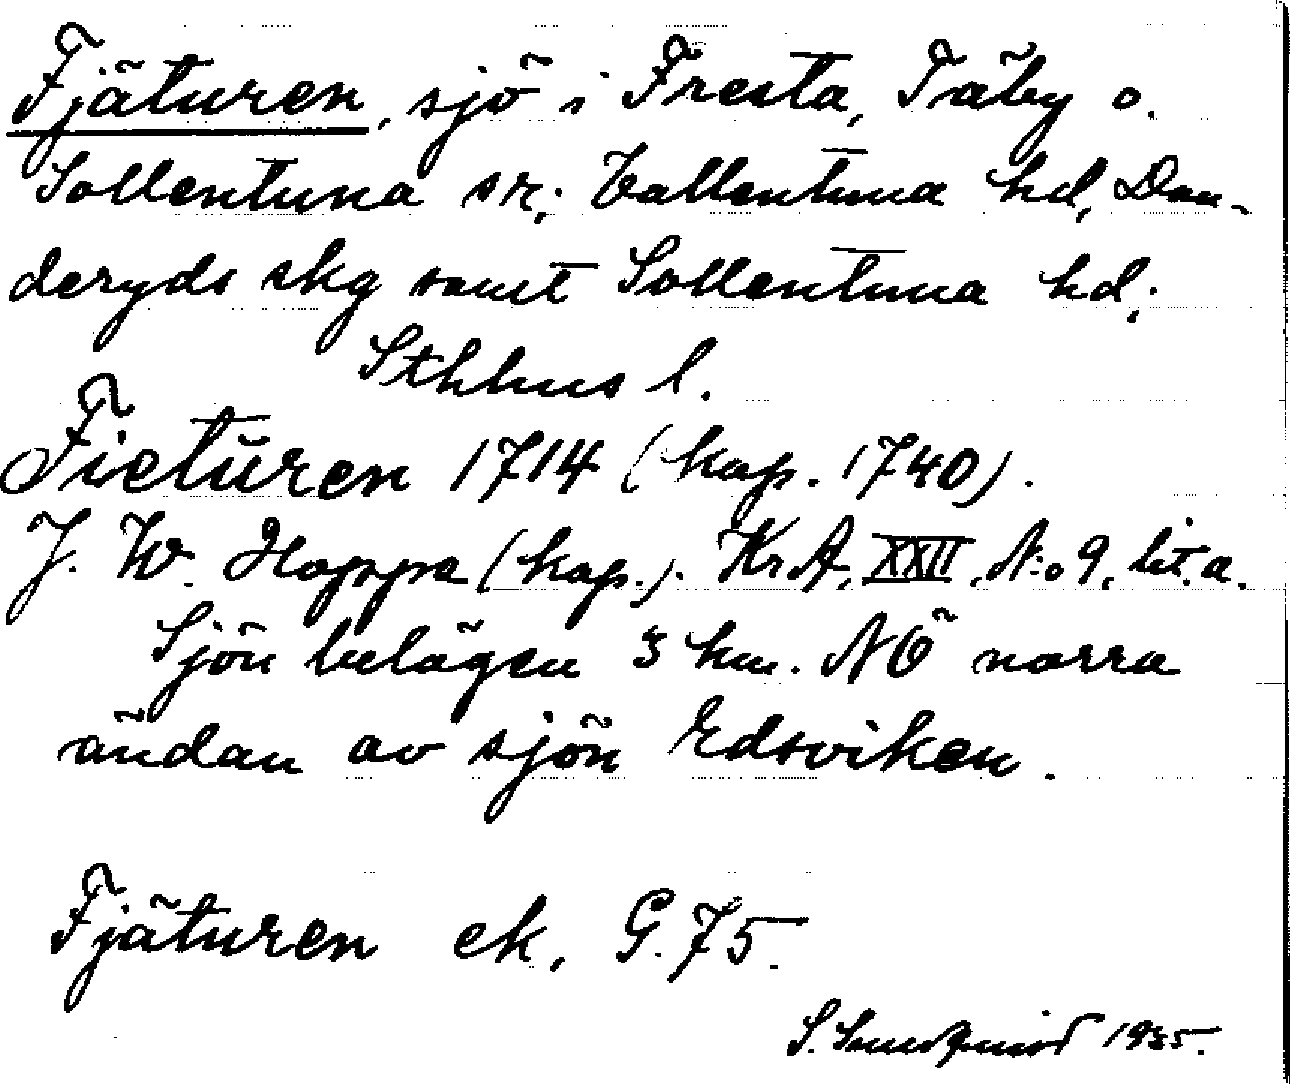 Fjäturen, sjö i Fresta, Täby o.
Sollentuna sr; Vallentuna hd, Dan-
deryds skg samt Sollentuna hd;
Sthlms l.
Fieturen 1714 (kop. 1740).
J. W. Hoppe (kop.). KrA, XXII, N:o 9, lit. a.
Sjön belägen 3 km. NÖ norra
ändan av sjön Edsviken.
Fjäturen ek. G. 75.
S. Sundquist 1935.